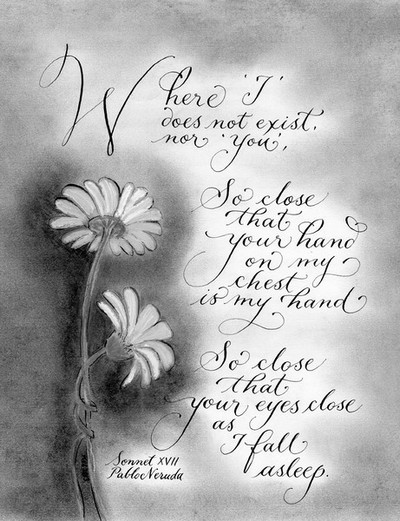 Where 'I'
does not exist,
nor 'you',
So close
that
your hand
on my
chest
is my hand
So close
that
your eyes close
as
I fall
asleep.
Sonnet XVII
Pablo Neruda